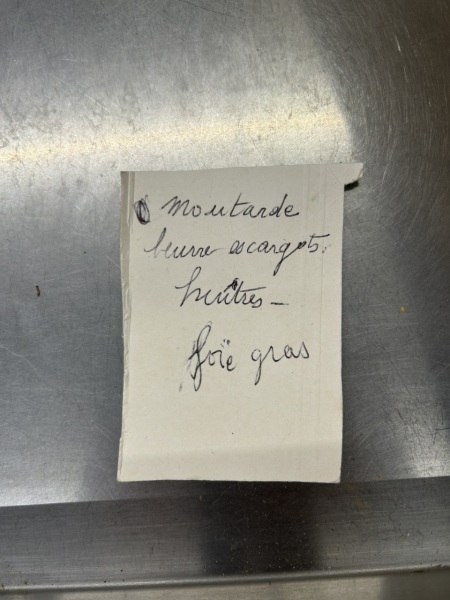 Moutarde
beurre escargots.
huîtres -
foïe gras